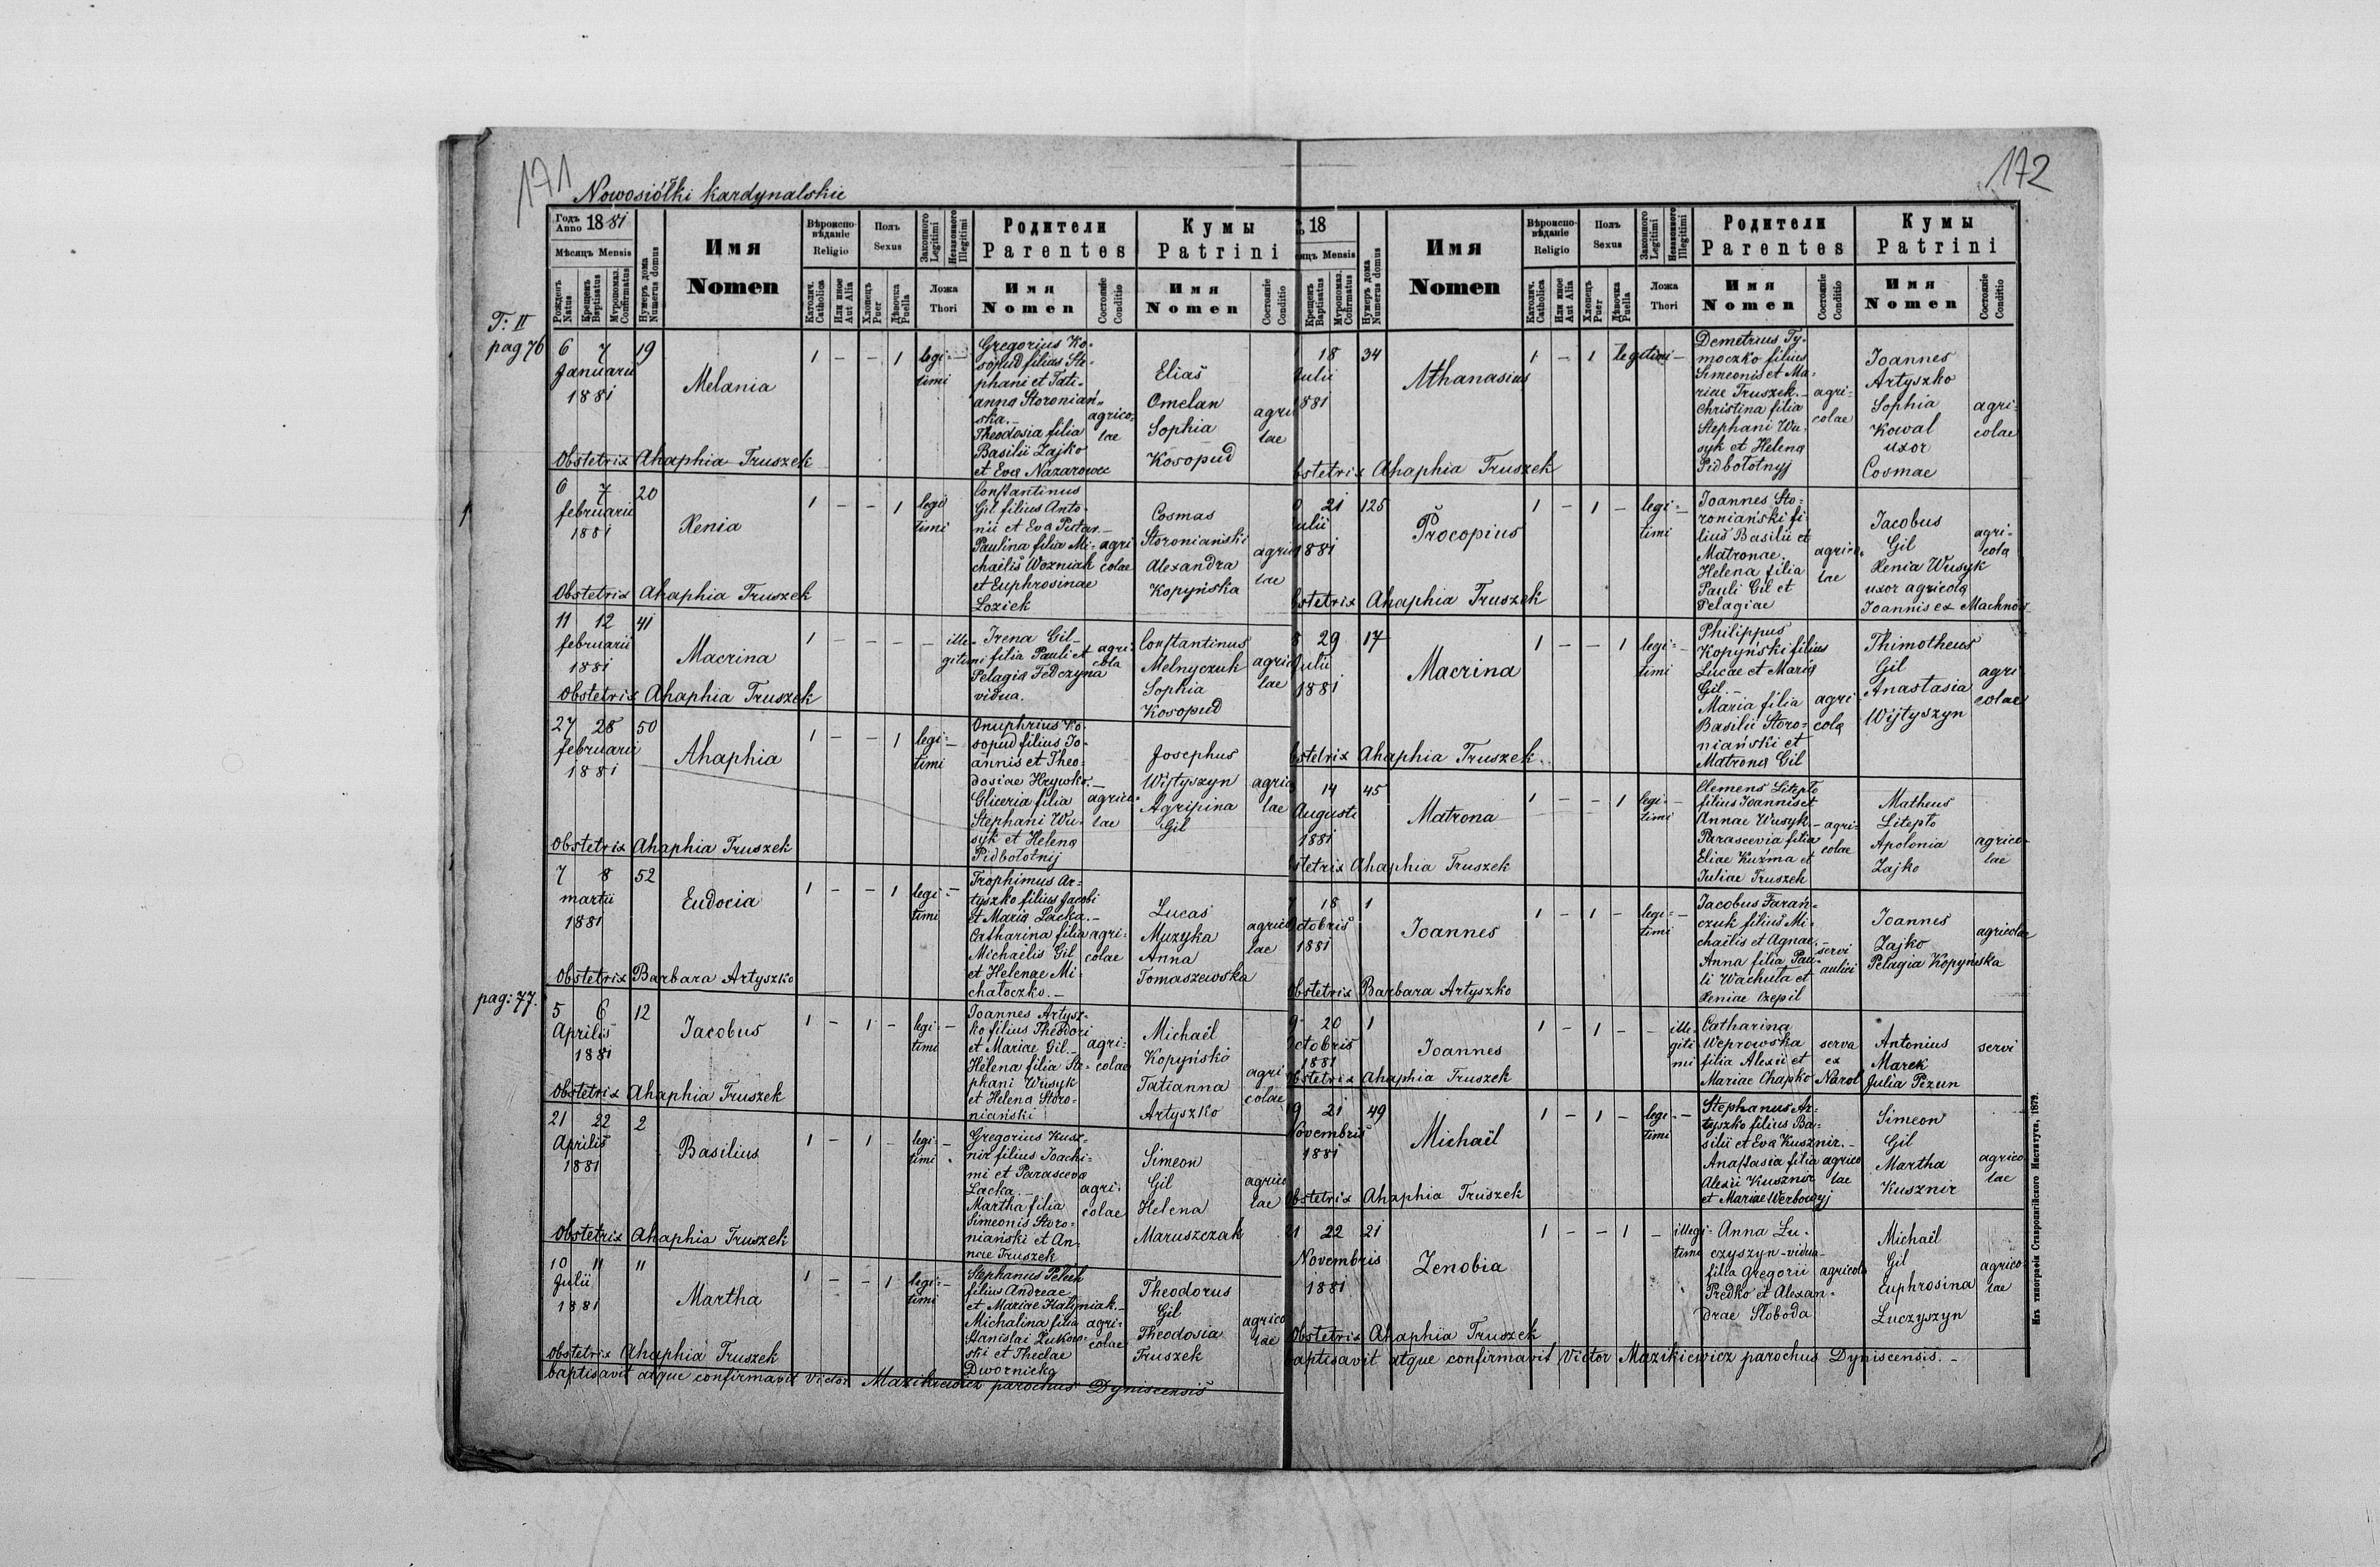 171
Nowosiółki kardynalskie
T: II
pag 76
pag: 77.
Годъ Anno 1881
Мѣсяцъ Mensis
Рожденъ Natus
Крещенъ Baptisatus
Муропомаз. Confirmatus
Нумеръ дома Numerus domus
Имя Nomen
Вѣроисповѣданіе Religio
Католич. Catholica
Или иное Aut Alia
Полъ Sexus
Хлопець Puer
Дѣвочка Puella
Законного Legitimi
Незаконного Illegitimi
Ложа Thori
Родители Parentes
Имя Nomen
Состояніе Conditio
Кумы Patrini
Имя Nomen
Состояніе Conditio
6 7 19
Januarii
1881
Melania
1 – – 1
legi–
timi
Gregorius Ko-
sopud filius Ste-
phani et Tati-
anna Storoniań-
ska.–
Theodosia filia
Basilii Zajko
et Eva Nazarowec
agrico-
lae
Elias
Omelan
Sophia
Kosopud
agrico
lae
Obstetrix Ahaphia Truszek
6 7 20
februarii
1881
Xenia
1 – – 1
legi
timi
Constantinus
Gil filius Anto-
nii et Eva Pistar.–
Paulina filia Mi-
chaëlis Wozniak
et Euphrosinae
Loziek
agri
colae
Cosmas
Storoniański
Alexandra
Kopyńska
agrico
lae
Obstetrix Ahaphia Truszek
11 12 41
februarii
1881
Macrina
1 – – – –
ille-
gitimi
Irena Gil–
filia Pauli et
Pelagia Fedczyna
vidua.
agri-
cola
Constantinus
Melnyczuk
Sophia
Kosopud
agrico
lae
Obstetrix Ahaphia Truszek
27 28 50
februarii
1881
Ahaphia
1 – – 1
legi-–
timi
Onuphrius Ko-
sopud filius Jo-
annis et Theo-
dosiae Hrywko.–
Gliceria filia
Stephani Wu-
syk et Helena
Pidbołotnij
agrico-
lae
Josephus
Wijtyszyn
Agripina
Gil
agrico
lae
Obstetrix Ahaphia Truszek
7 8 52
martii
1881
Eudocia
1 – – 1
legi-–
timi
Trophimus Ar-
tyszko filius Jacobi
et Maria Lacka.–
Catharina filia
Michaëlis Gil
et Helenae Mi-
chałoczko.–
agri-
colae
Lucas
Muzyka
Anna
Tomaszewska
agrico
lae
Obstetrix Barbara Artyszko
5 6 12
Aprilis
1881
Jacobus
1 – 1 –
legi-–
timi
Joannes Artysz-
ko filius Theodori
et Mariae Gil.–
Helena filia Ste-
phani Wusyk
et Helena Storo-
niański
agri-
colae
Michaël
Kopyńskó
Tatianna
Artyszko
agri
colae
Obstetrix Ahaphia Truszek
21 22 2
Aprilis
1881
Basilius
1 – 1 –
legi-–
timi
Gregorius Kusz-
nir filius Joachi-
mi et Parasceva
Lacka.–
Martha filia
Simeonis Storo-
niański et An-
nae Truszek
agri-
colae
Simeon
Gil
Helena
Maruszczak
agrico
lae
Obstetrix Ahaphia Truszek
10 11 11
Julii
1881
Martha
1 – – 1
legi-–
timi
Stephanus Pelech
filius Andreae
et Mariae Hałyniak.–
Michalina filia
Stanislai Zukow-
ski et Theclae
Dwornicka
agri-
colae
Theodorus
Gil
Theodosia
Truszek
agrico
lae
Obstetrix Ahaphia Truszek
baptisavit atque confirmavit Victor Mazikiewicz parochus Dyniscensis
172
18
Mensis
Крещенъ Baptisatus
Муропомаз. Confirmatus
Нумеръ дома Numerus domus
Имя Nomen
Вѣроисповѣданіе Religio
Католич. Catholica
Или иное Aut Alia
Полъ Sexus
Хлопець Puer
Дѣвочка Puella
Законного Legitimi
Незаконного Illegitimi
Ложа Thori
Родители Parentes
Имя Nomen
Состояніе Conditio
Кумы Patrini
Имя Nomen
Состояніе Conditio
18 34
Julii
1881
Athanasius
1 – 1 legitimi –
Demetrius Ty-
moczko filius
Simeonis et Ma-
riae Truszek.–
Christina filia
Stephani Wu-
syk et Helena
Pidbołotnyj
agri-
colae
Joannes
Artyszko
Sophia
Kowal
uxor
Cosmae
agri-
colae
bstetrix Ahaphia Truszek
21 125
Julii
1881
Procopius
1 – 1 –
legi-–
timi
Joannes Sto-
roniański fi
lius Basilii et
Matronae.
Helena filia
Pauli Gil et
Pelagiae
agrico-
lae
Jacobus
Gil
Xenia Wusyk
uxor agricola
Joannis ex Machnów
agri-
cola
bstetrix Ahaphia Truszek
8 29 17
Julii
1881
Macrina
1 – – 1
legi-–
timi
Philippus
Kopyński filius
Lucae et Maria
Gil.–
Maria filia
Basilii Storo-
niański et
Matrona Gil
agri-
cola
Thimotheus
Gil
Anastasia
Wijtyszyn
agri
colae
bstetrix Ahaphia Truszek.
14 45
Augusti
1881
Matrona
1 – – 1
legi-–
timi
Clemens Litepło
filius Joannis et
Annae Wusyk.–
Parascevia filia
Eliae Kuźma et
Juliae Truszek
agri-
colae
Matheus
Litepło
Apolonia
Zajko
agrico-
lae
stetrix Ahaphia Truszek
7 18 1
Octobris
1881
Joannes
1 – 1 –
legi-–
timi
Jacobus Farań-
czuk filius Mi-
chaëlis et Agnae.–
Anna filia Pau-
li Wachuta et
Xeniae Czepil
servi
aulici
Joannes
Zajko
Pelagia Kopyńska
agricolae
Obstetrix Barbara Artyszko
9 20 1
Octobris
1881
Joannes
1 – 1 – –
ille-
giti
mi
Catharina
Weprowska
filia Alexii et
Mariae Chapko
serva
ex
Narol
Antonius
Marek
Julia Pizun
servi
Obstetrix Ahaphia Truszek
19 21 49
Novembris
1881
Michaël
1 – 1 –
legi-–
timi
Stephanus Ar-
tyszko filius Ba-
silii et Eva Kusznir.–
Anastasia filia
Alexii Kusznir
et Mariae Werbowyj
agrico
lae
Simeon
Gil
Martha
Kusznir
agrico
lae
Obstetrix Ahaphia Truszek
21 22 21
Novembris
1881
Zenobia
1 – – 1 –
illegi-
timi
Anna Lu-
czyszyn–vidua–
filia Gregorii
Predko et Alexan-
drae Słoboda
agricola
Michaël
Gil
Euphrosina
Luczyszyn
agrico
lae
Obstetrix Ahaphia Truszek
baptisavit atque confirmavit Victor Mazikiewicz parochus Dyniscensis.–
Изъ типографіи Ставропигійского Института, 1879.